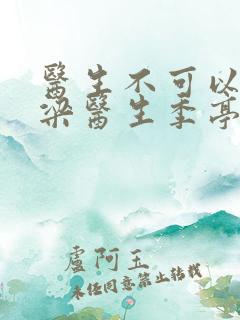 醫生不可以
梁醫生季亭
盧阿玉
未经同意禁止转载